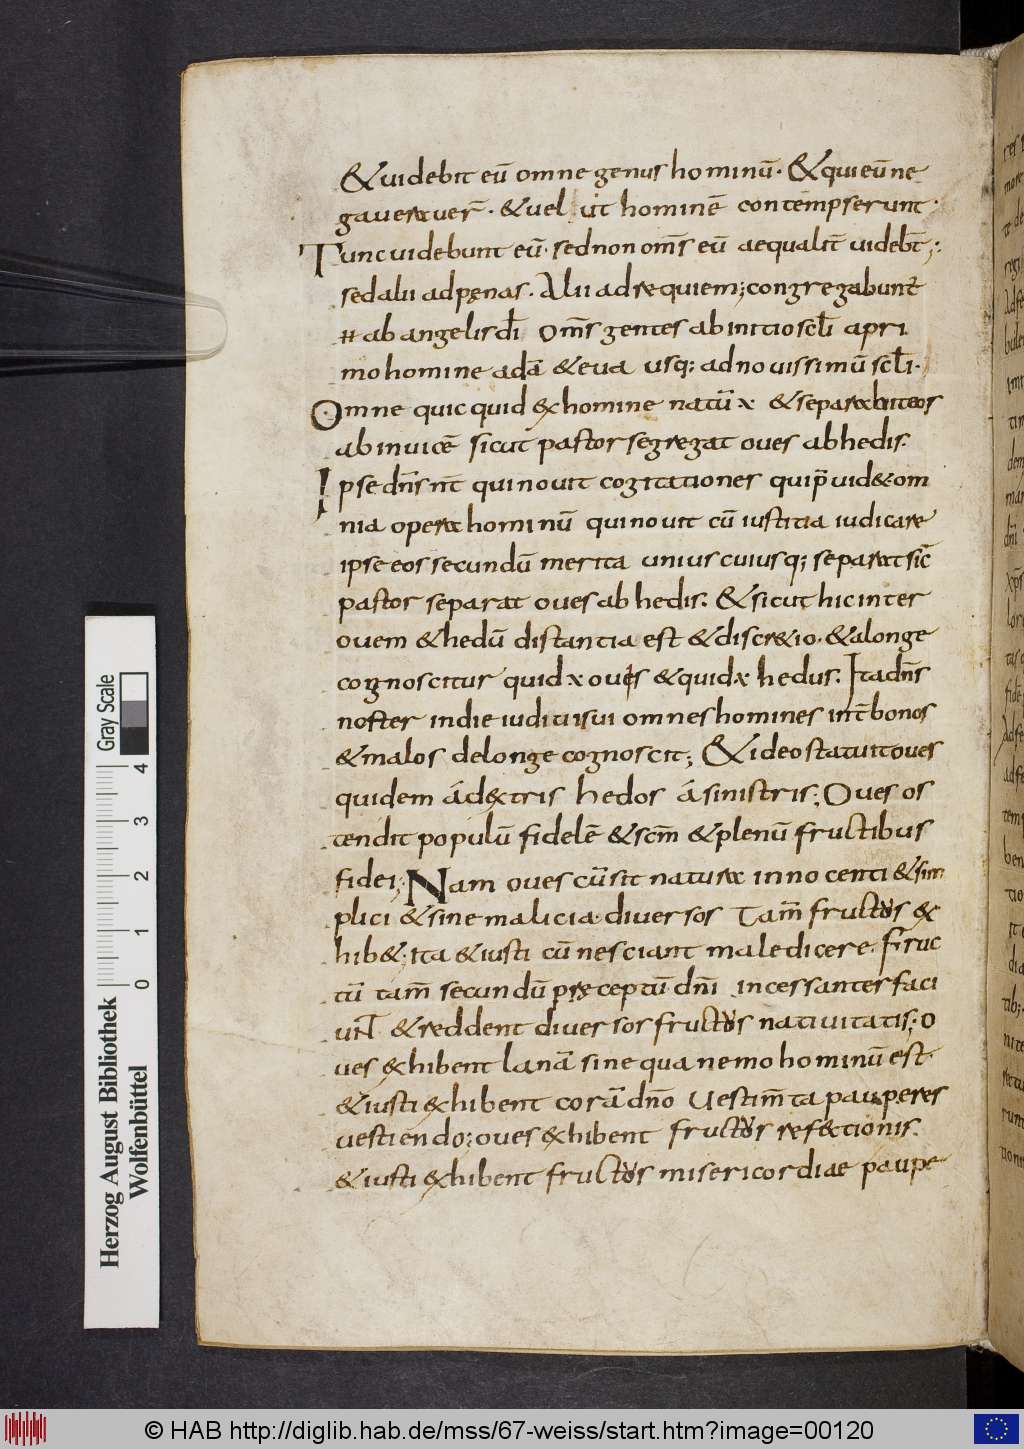 &uidebit eū omne genus hominū· &qui eū ne
gauerunt· &uel ut hominē contempserunt·
Tunc uidebunt eū· sed non om̄s eū aequalit̄ uideb̄t;
sed alii ad pęnas. Alii ad requiem; congregabunt̄
ab angelis d̄i om̄s gentes ab initio scl̄i a pri
mo homine adā &eua usq; ad nouissimū scl̄i·
Omne quicquid exhomine natū &separabit eos
ab inuicē sicut pastor segregat oues ab hedis.
Ipse dn̄s qui nouit cogitationes qui p̄uid& om
nia opera hominū qui nouit cū iustitia iudicare
ipse eos secundū merita unius cuiusq; separat sic̄
pastor separat oues ab hedis. &sicut hic inter
ouem &hedū distantia est &discr&io· &a longe
cognoscitur quid oues &quid hedus. Ita dn̄s
noster in die iudicii sui omnes homines int̄ bonos
&malos de longe cognoscit; &ideo statuit oues
quidem á dextris hedos á sinistris; Oues os
tendit populū fidelē &scm̄ &plenū fructibus
fidei; Nam oues cū sit natura innocenti &sim
plici &sine malicia· diuersos tam̄ fructus ex
hib&; ita &iusti cū nesciant maledicere. fruc
tū tam̄ secundū pręceptū dn̄i incessanter faci
unt &reddent diuersos fructus natiuitatis; o
ues exhibent lanā sine qua nemo hominū est·
&iusti exhibent corā dn̄o uestim̄ta pauperes
uestiendo; oues exhibent fructus refectionis.
&iusti exhibent fructus misericordiae paupe
Gray Scale
0 1 2 3 4
Herzog August Bibliothek
Wolfenbüttel
© HAB http://diglib.hab.de/mss/67-weiss/start.htm?image=00120